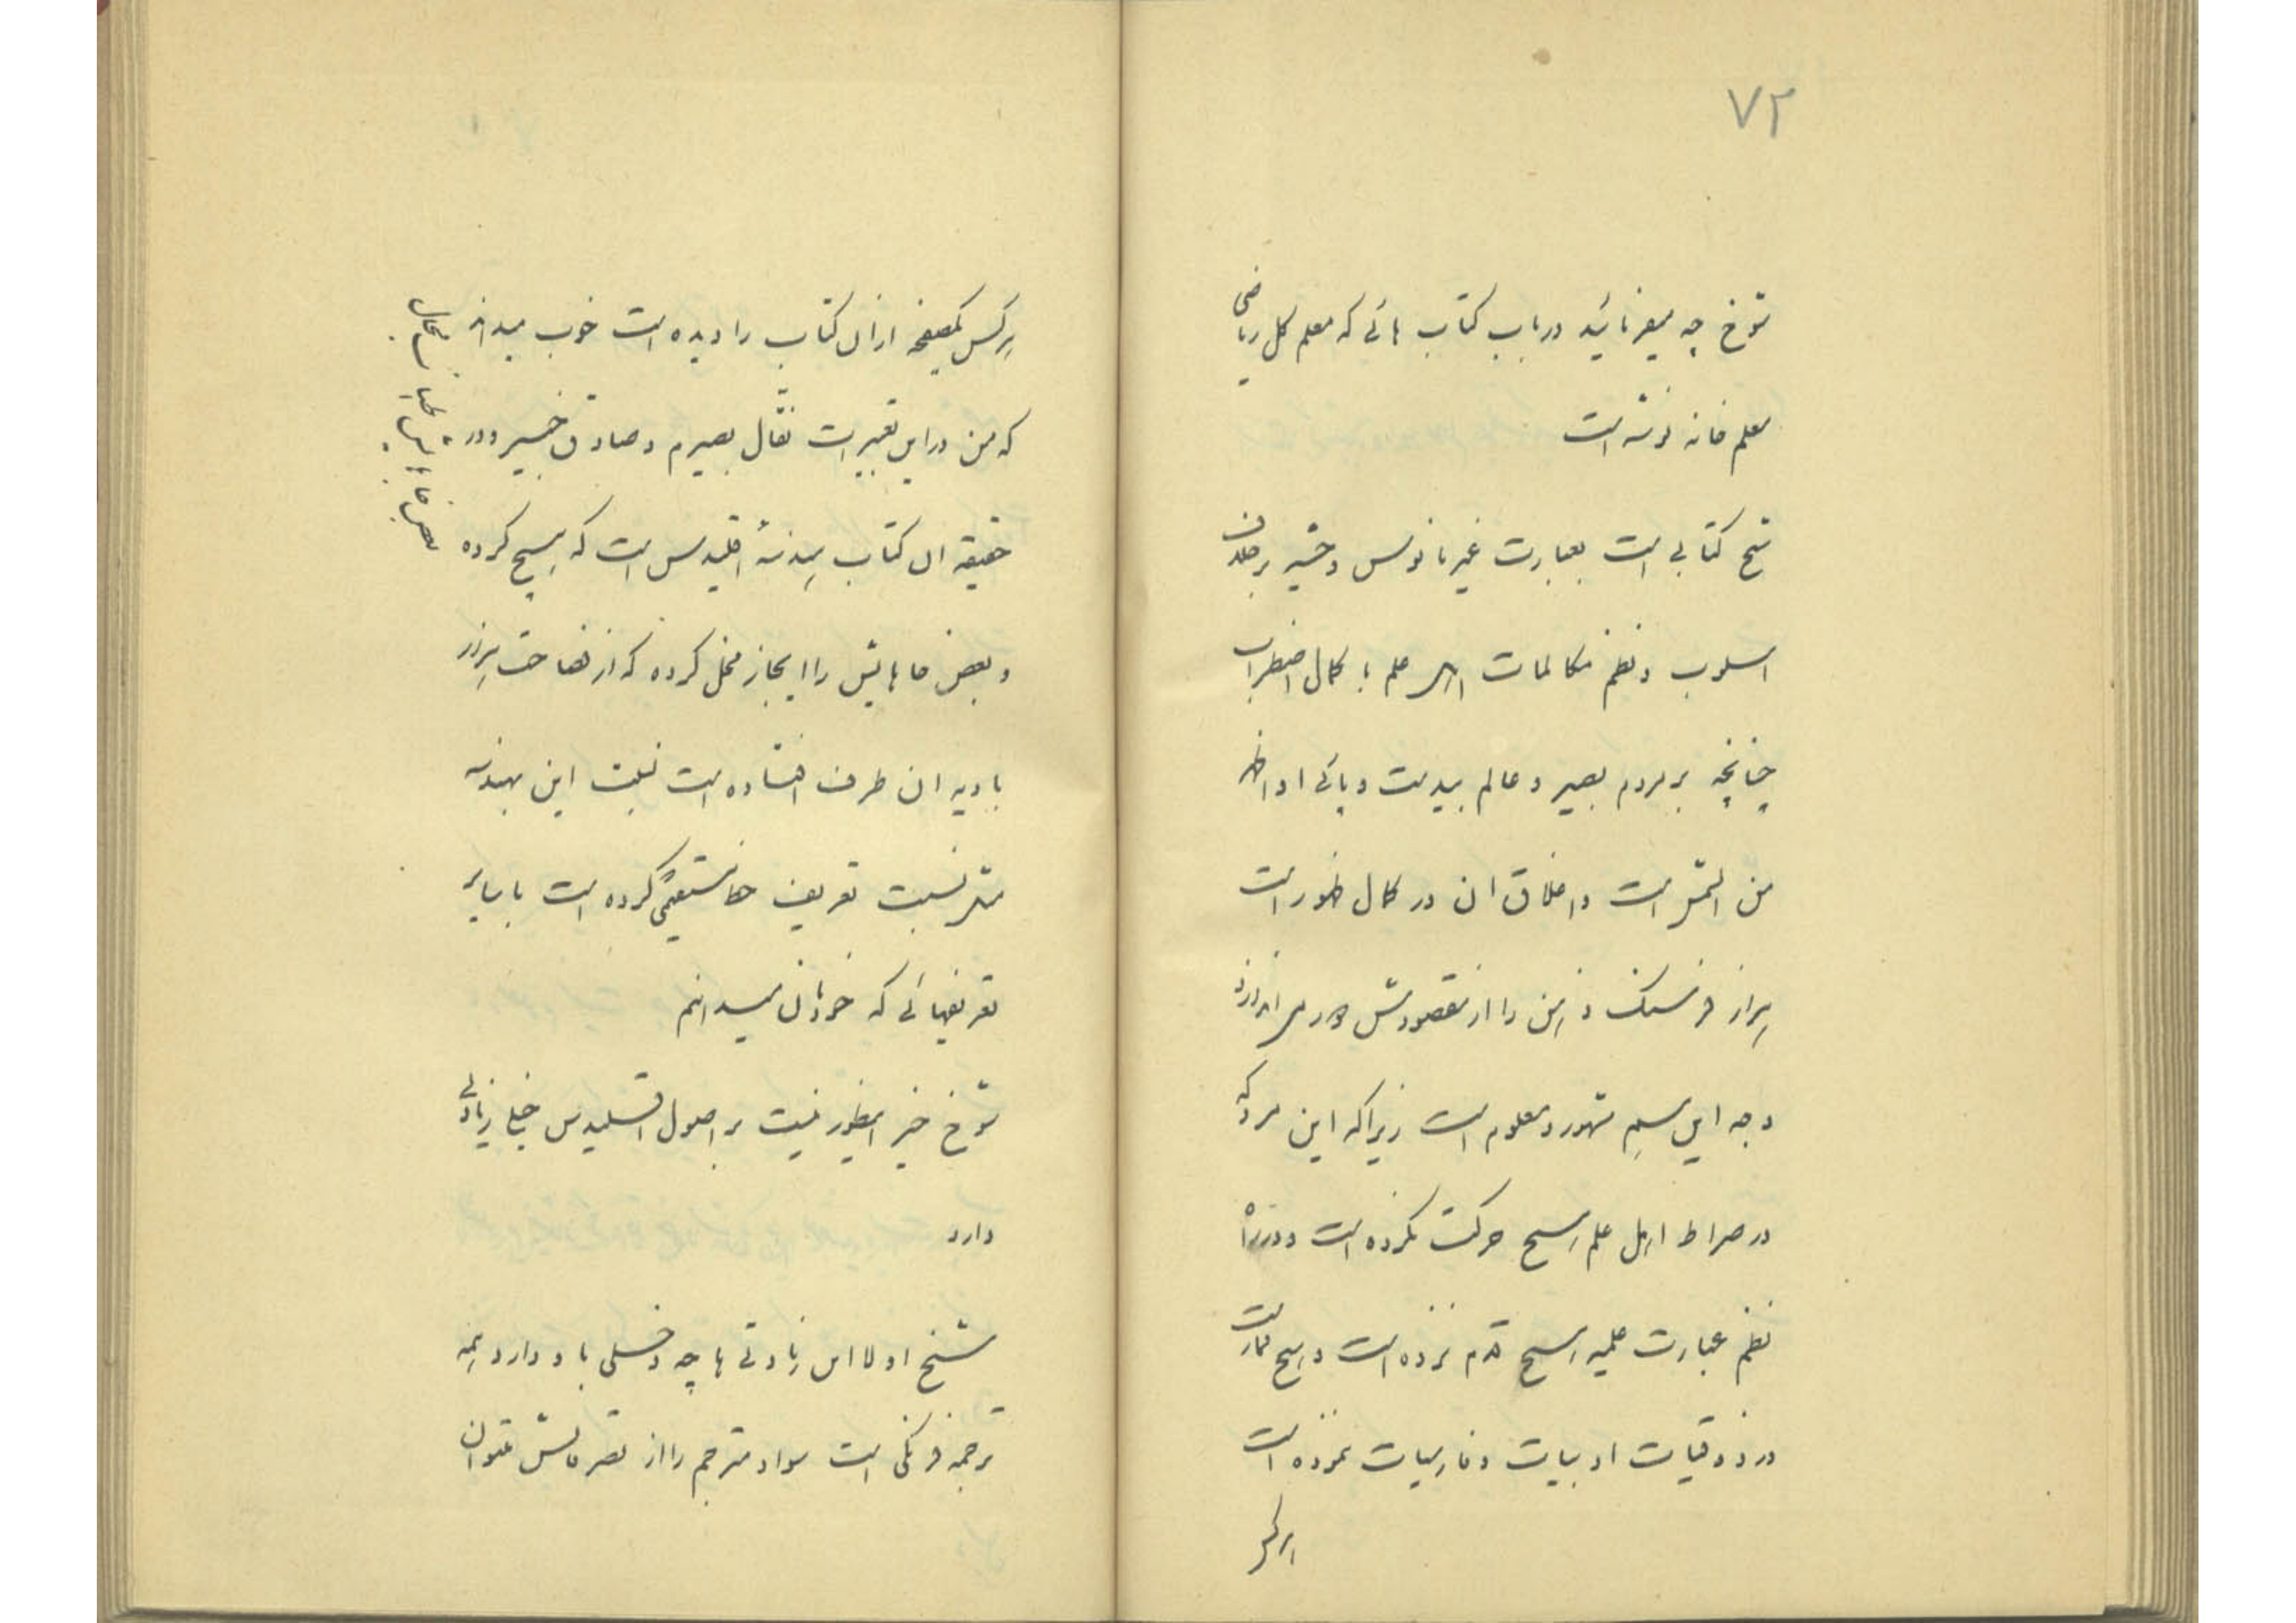 ۷۲
شوخ چه میفرمائید در باب کتاب هائی که معلم کل ریاضی
معلم خانه نوشته است
شیخ کتابی است بعبارت غیر مانوس وحشیه برخلاف
اسلوب و نظم مکالمات اهل علم با کمال اضطراب
چنانچه بر مردم بصیر و عالم بیدیت و پائی او اظهر
من الشمس است و اغلاق ان در کمال ظهور است
هزار فرسنک ذهن را از مقصودش دور می اندازد
وجه این سیم مشهور و معلوم است زیرا که این مردکه
در صراط اهل علم هیچ حرکت نکرده است و در راه
نظم عبارت علمیه هیچ قدم نزده است و هیچ ممارست
در ذوقیات ادبیات و فارسیات ننموده است
هر کس
هر کس یکصفحه از ان کتاب را دیده است خوب میداند
که من در این تعبیرات نقّال بصیرم و صادق خبیر و در
حقیقه ان کتاب هندسهٔ اقلیدس است که هیچ کرده
و بعض جاهایش را ایجاز مخل کرده که از فصاحت هزار
بادیه ان طرف افتاده است نیست این هندسه
مثل نسبت تعریف خط مستقیمی کرده است با سایر
تعریفهائی که خودمان میدانیم
شوخ خیر اینطور نیست بر اصول اقلیدس خیلی زیادتی
دارد
شیخ اولا این زیادتی ها چه دخلی باو دارد همه
ترجمه فرنکی است سواد مترجم را از تصرفاتش میتوان